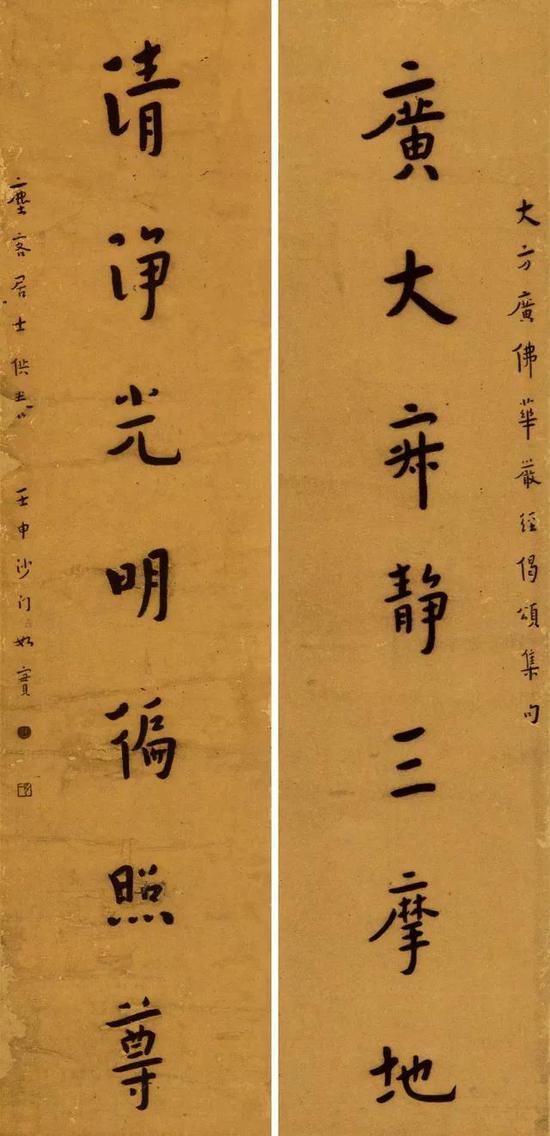 大方廣佛華嚴經偈頌集句
廣大寂靜三摩地
清淨光明徧照尊
塵客居士供養 壬申沙门如實